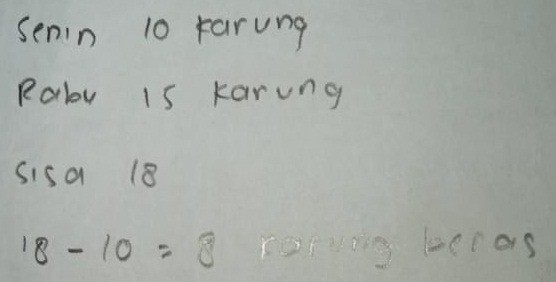 Senin 10 karung
Rabu 15 karung
Sisa 18
18 - 10 = 8 karung beras